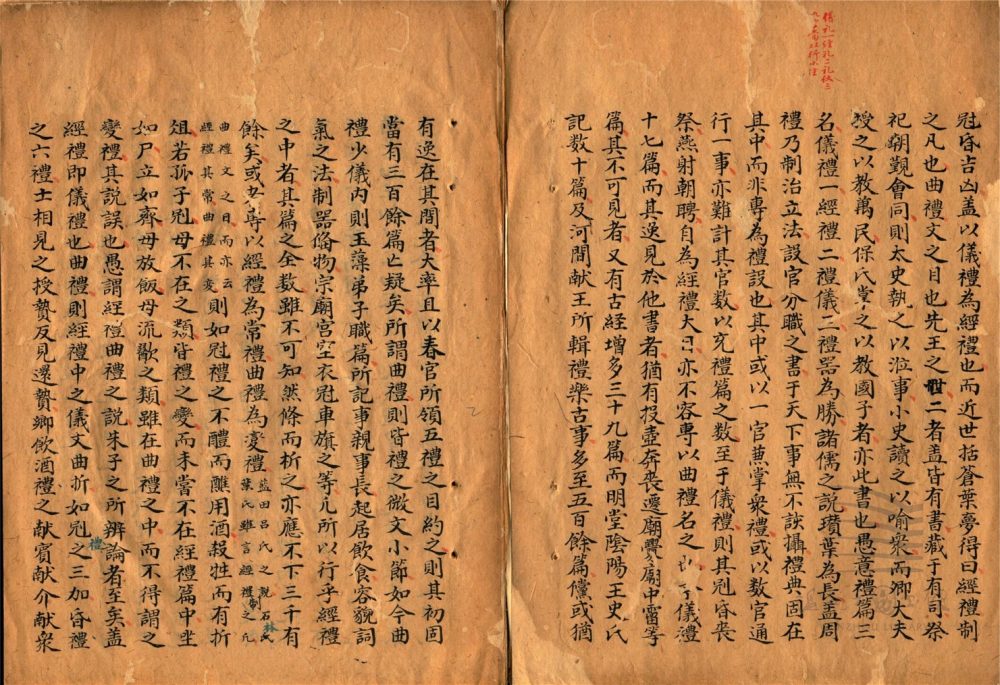 冠昏吉凶盖以儀禮為經禮也而近世括蒼葉夢得曰經禮制
之凡也曲禮文之目也先王之世二者盖皆有書藏于有司祭
祀朝覲會同則太史執之以涖事小史讀之以喻衆而卿大夫
授之以教萬民保氏掌之以教國子者亦此書也愚意禮篇三
名儀禮一經禮二禮儀二禮器為勝諸儒之說瓚葉為長盖周
禮乃制治立法設官分職之書于天下事無不該攝禮典固在
其中而非專為禮設也其中或以一官兼掌衆禮或以數官通
行一事亦難計其官数以充禮篇之数至于儀禮則其冠昏喪
祭燕射朝聘自為經禮大目亦不容專以曲禮名之 于儀禮
十七篇而其逸見於他書者猶有投壺奔喪遷廟釁廟中霤等
篇其不可見者又有古経增多三十九篇而明堂陰陽王史氏
記数十篇及河間献王所輯禮樂古事多至五百餘篇儻或猶
有逸在其間者大率且以春官所領五禮之目約之則其初固
當有三百餘篇亡疑矣所謂曲禮則皆禮之微文小節如今曲
禮少儀内則玉藻弟子職篇所記事親事長起居飲食容貌詞
氣之法制器俻物宗廟宫室衣冠車旗之等凡所以行乎經禮
之中者其篇之全数雖不可知然條而析之亦應不下三千有
餘矣或者専以經禮為常禮曲禮為変禮
藍田吕氏之說石林
葉氏雖言經禮制之凡
曲禮文之目而亦云
經禮其常曲禮其変
則如冠禮之不醴而醮用酒殺牲而有折
俎若孤子冠母不在之類皆禮之變而未嘗不在經禮篇中坐
如尸立如齊毋放飯毋流歠之類雖在曲禮之中而不得謂之
變禮其說誤也愚謂經禮曲禮之說朱子之所辨論者至矣盖
經禮即儀禮也曲禮則經中之儀文曲折如冠禮之三加昏禮
之六禮士相見之授贄反見還贄鄉飲酒禮之献賓献介献衆